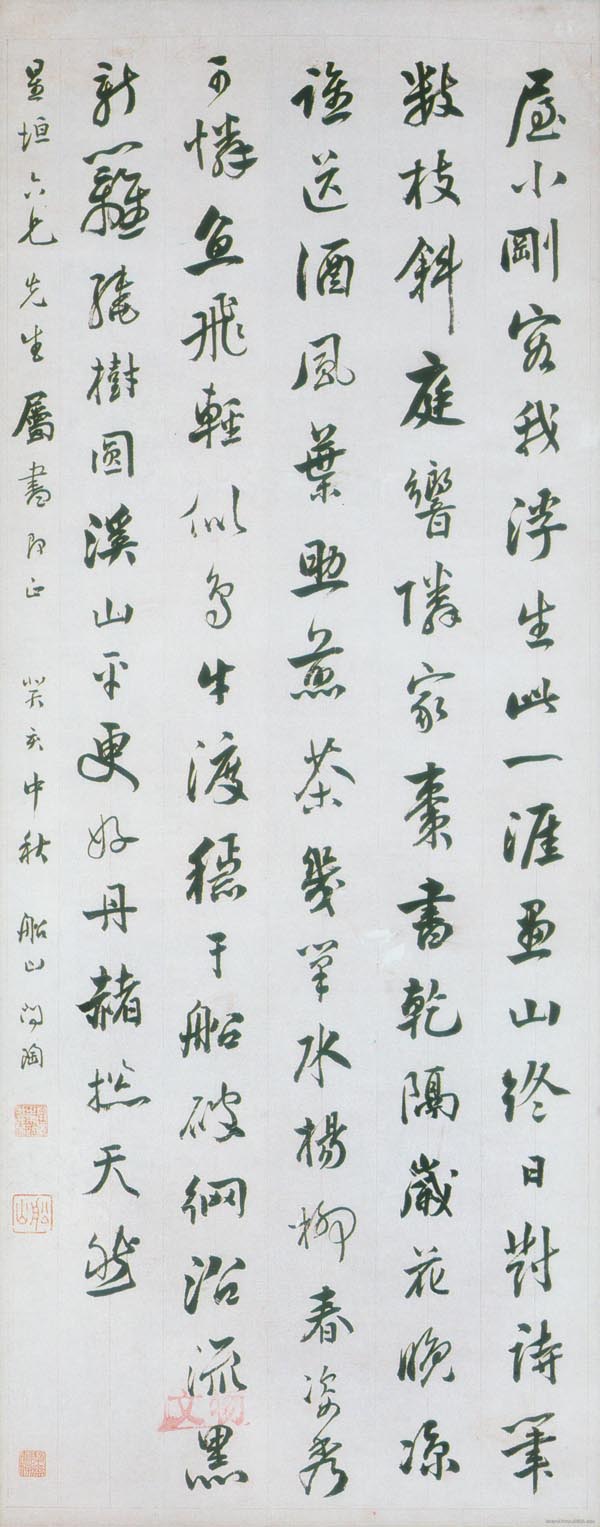 屋小剛容我浮生此一涯畫山終日對詩筆
數枝斜庭響隣家棗書乾隔歲花晚涼
誰送酒風葉助煎茶幾筆水楊柳春姿秀
可憐魚飛輕似鳥牛渡穩于船破網沿流黑
新籬繞樹圓溪山平更好丹赭總天然
星垣六兄先生屬書即正 癸亥中秋 船山問陶
船山
文物